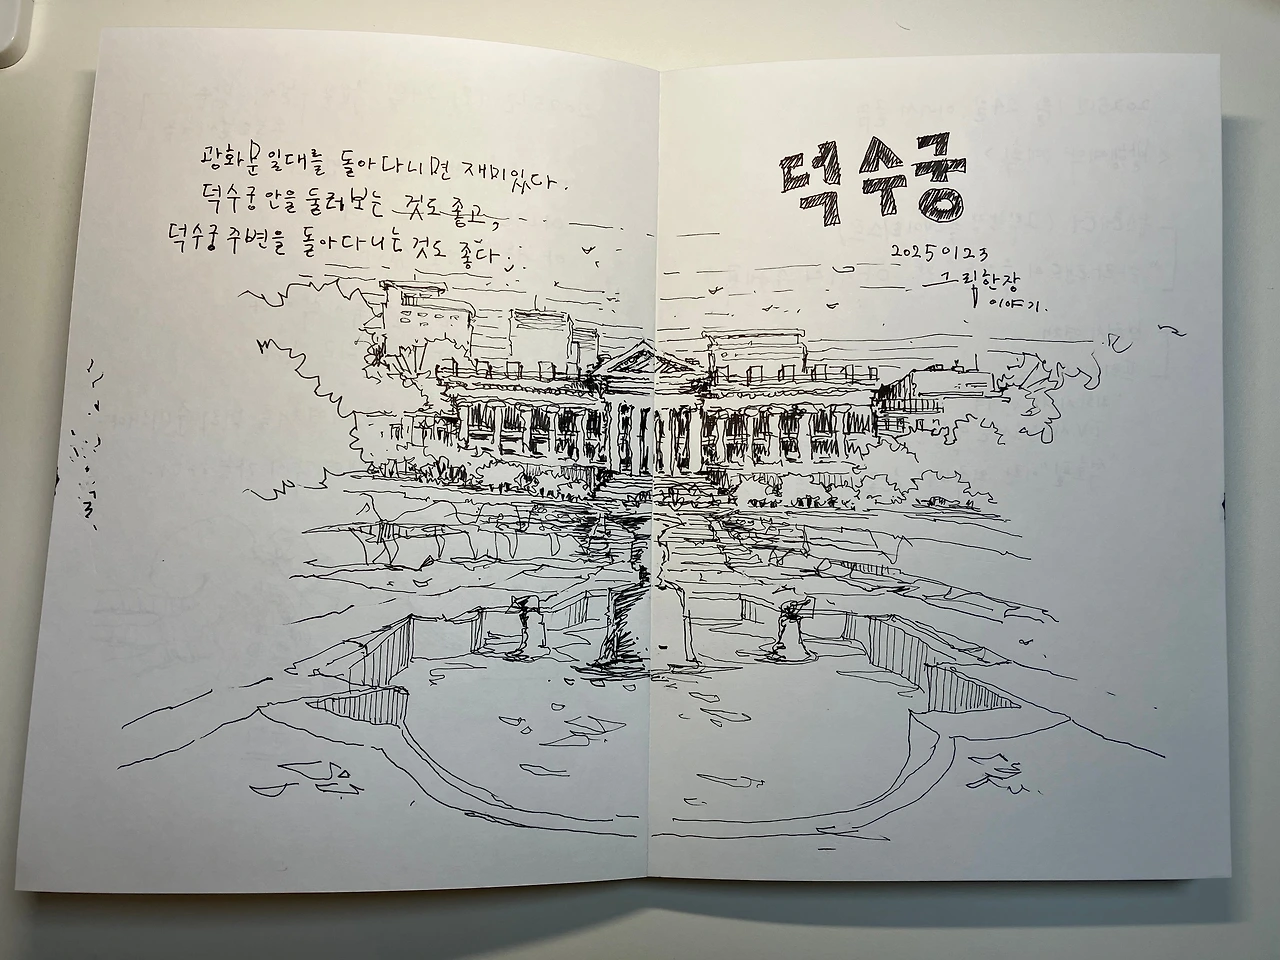 광화문 일대를 돌아다니면 재미있다.
덕수궁 안을 둘러보는 것도 좋고,
덕수궁 주변을 돌아다니는 것도 좋다.
덕수궁
20250123
그림한장
이야기.